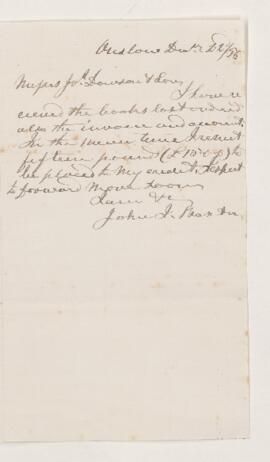 Onslow Decr 22/56
Messrs Jos. Dawson & Son,
I have re
cieved the books last ordered
also the invoice and account
In the mean time I remit
fifteen pound (£15-0-0) to
be placed to my credit, I expect
to forward more soon
I am &c
John J.